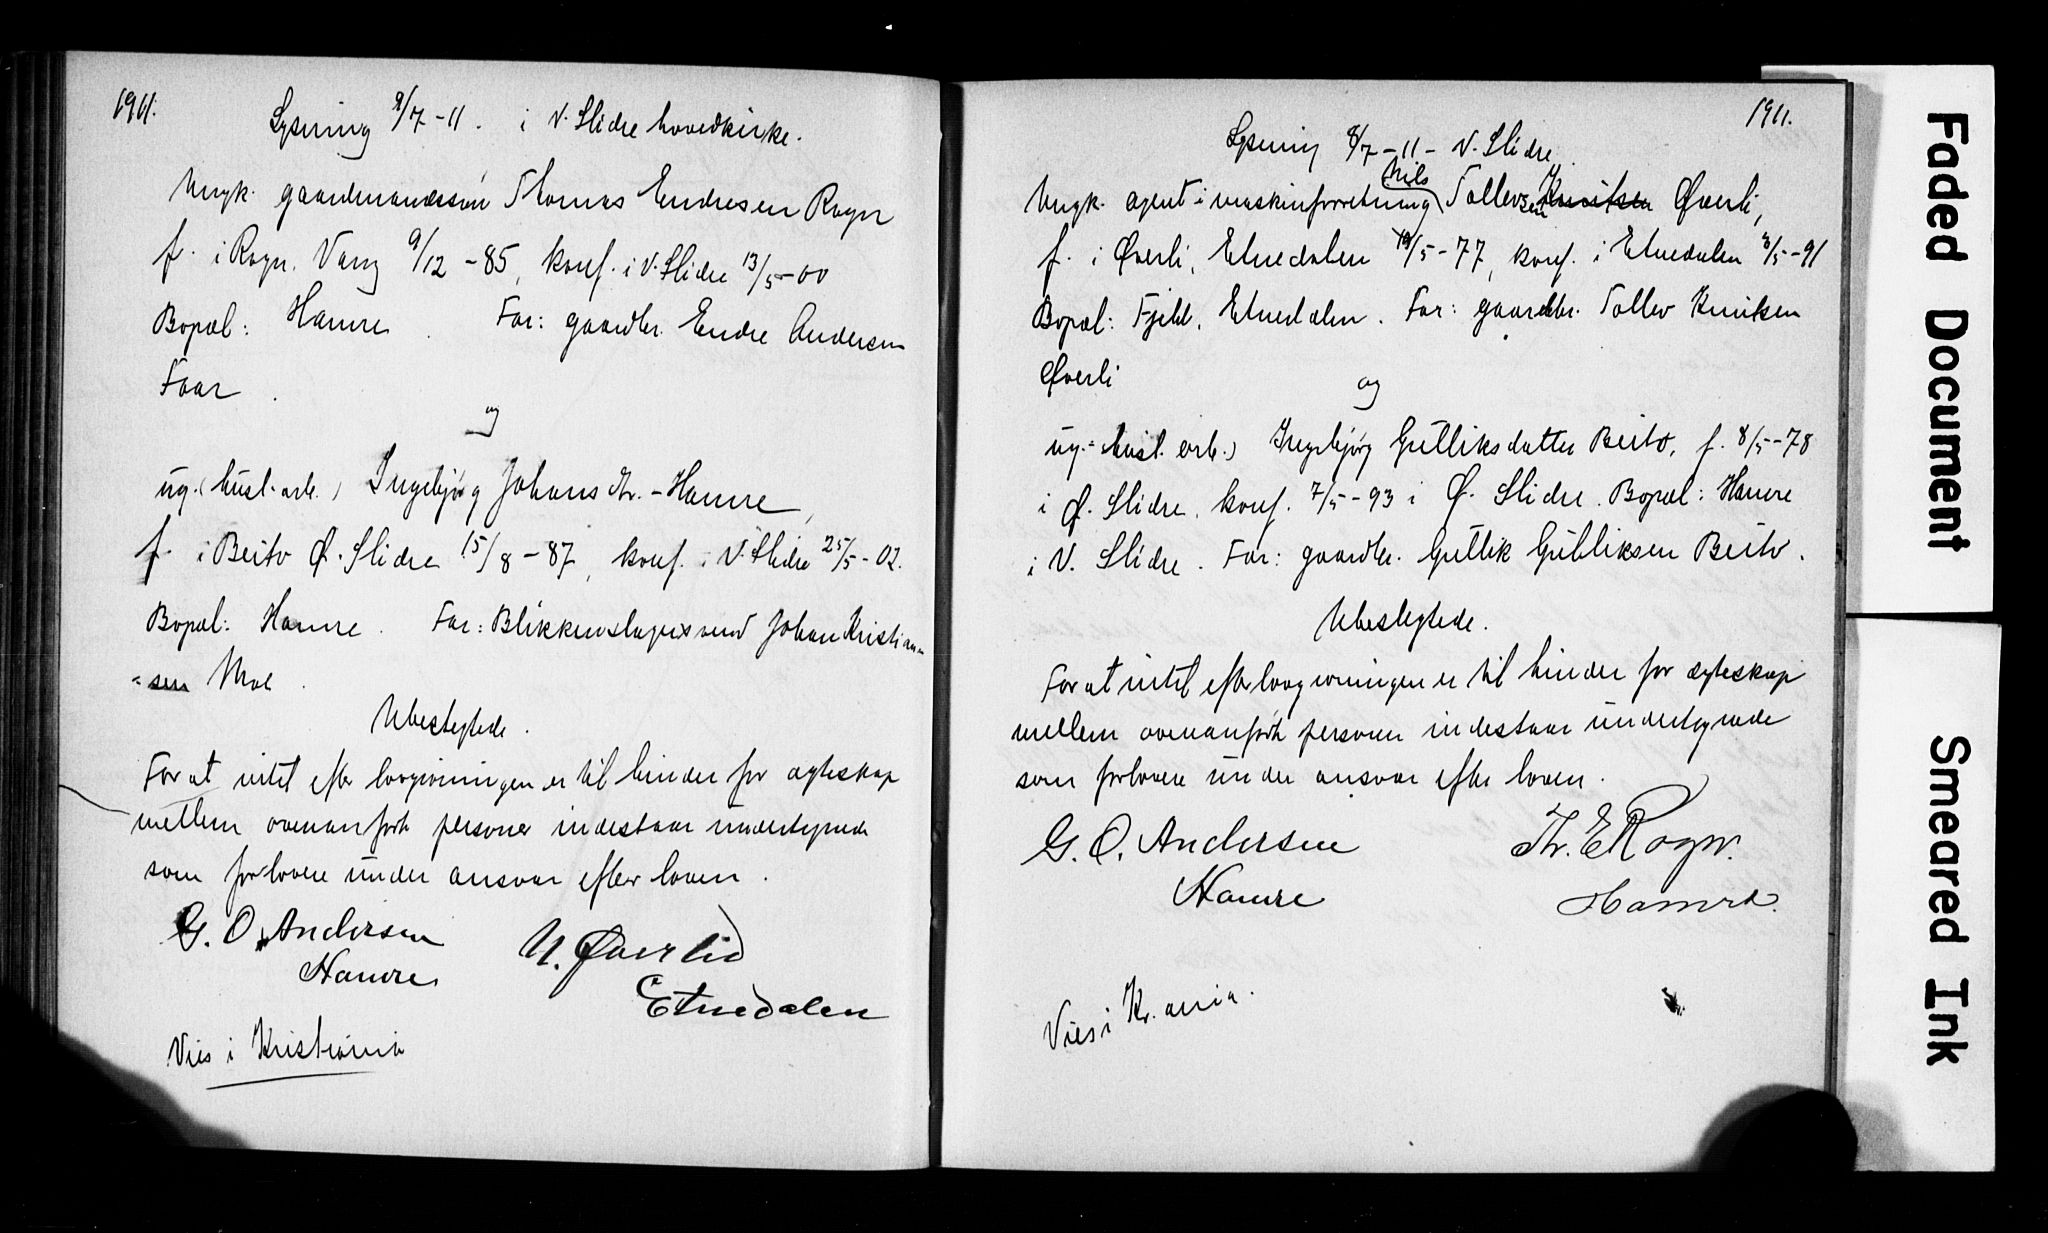 1911.
Lysning 9/7-11. i V. Slidre hovedkirke.
Ungk. gaardmandssøn Thomas Endresen Rogn
f. i Rogn. Vang 9/12 -85, konf. i V. Slidre 13/5-00
Bopæl: Hamre. Far: gaardbr. Endre Andersen
Faar.
og
ug. (husl. arb.) Ingebjørg Johansdtr. - Hamre,
f. i Beito Ø. Slidre 15/8-87, konf. i V. Slidre 25/5-02.
Bopæl: Hamre. Far: Blikkenslagersvend Johan Kristian-
-sen Moe.
Ubeslegtede.
For at intet efter lovgivningen er til hinder for egteskap
mellem ovenanførte personer indestaar undertegnede
som forlovere under ansvar efter loven.
G. O. Andersen N. Øverlid
Hamre Etnedalen
Vies i Kristiania
1911.
Lysning 8/7-11- V. Slidre.
Nils
Ungk. agent i maskinforretning Tollevsen Knutsen Øverli,
f. i Øverli, Etnedalen 19/5-77, konf. i Etnedalen 3/5-91
Bopæl: Fjeld, Etnedalen. Far: gaardbr. Tollev Knutsen
Øverli
og
ug. (husl. arb.) Ingebjørg Gulliksdatter Beito, f. 8/5-78
i Ø. Slidre, konf. 7/5-93 i Ø. Slidre. Bopæl: Hamre
i V. Slidre. Far: gaardbr. Gullik Gulliksen Beito.
Ubeslegtede.
For at intet efter lovgivningen er til hinder for egteskap
mellem ovenanførte personer indestaar undertegnede
som forlovere under ansvar efter loven.
G. O. Andersen Th. E Rogn.
Hamre Hamre.
Vies i Kr.ania.
Faded Document
Smeared Ink